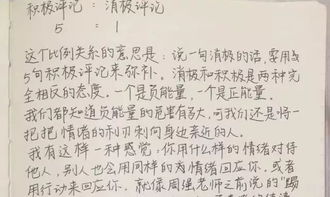 积极评论 : 消极评论
5 = 1
这个比例关系的意思是：说一句消极的话，需用
5句积极评论来弥补。消极和积极是两种完
全相反的态度。一个是负能量，一个是正能量。
我们都知道负能量的危害有多大，可我们还是将一
把把情绪的利刃刺向身边亲近的人。
我有这样一种感觉：你用什么样的情绪对待
他人，别人也会用同样的情绪回应你，或者
用行动来回应你。就像周强老师之前说的“踢